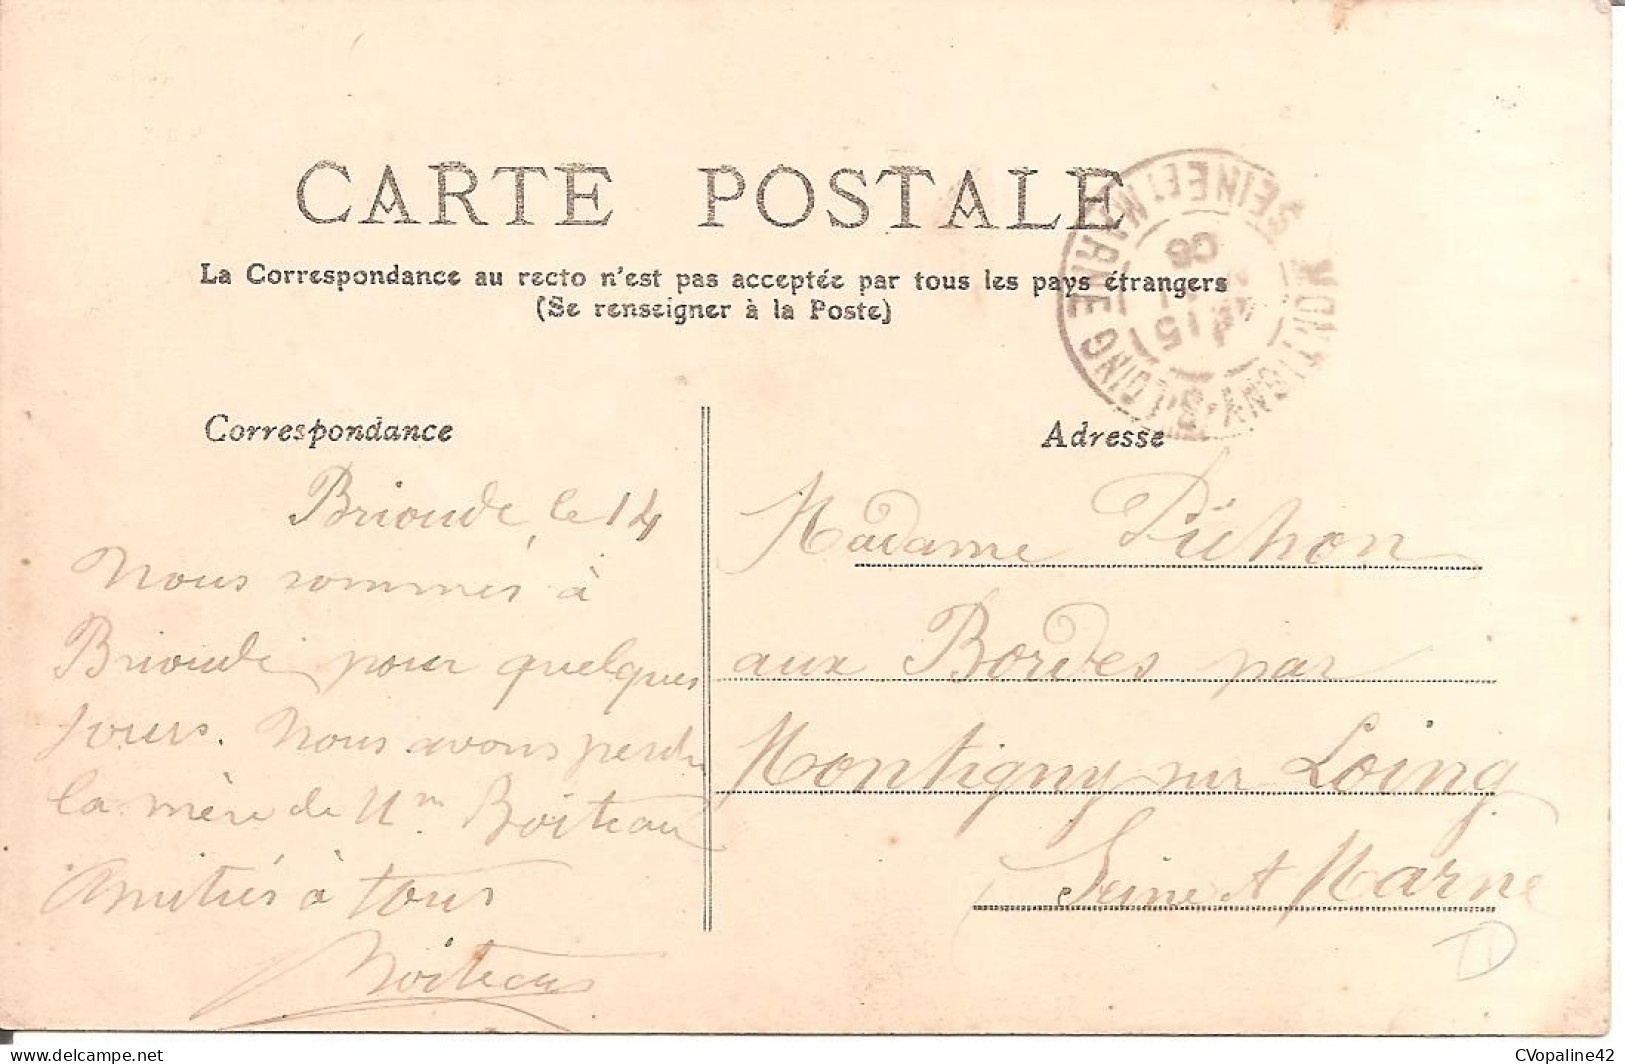 CARTE POSTALE
La Correspondance au recto n'est pas acceptée par tous les pays étrangers
(Se renseigner à la Poste)
MONTIGNY-S-LOING
SEINE ET MARNE
15
06
Correspondance
Brioude, le 14
Nous sommes à
Brioude pour quelques
jours. Nous avons perdu
la mère de Mme Boiteau
Amitiés à tous
Boiteau
Adresse
Madame Pichon
aux Bordes par
Montigny sur Loing
Seine et Marne
www.delcampe.net
CVopaline42